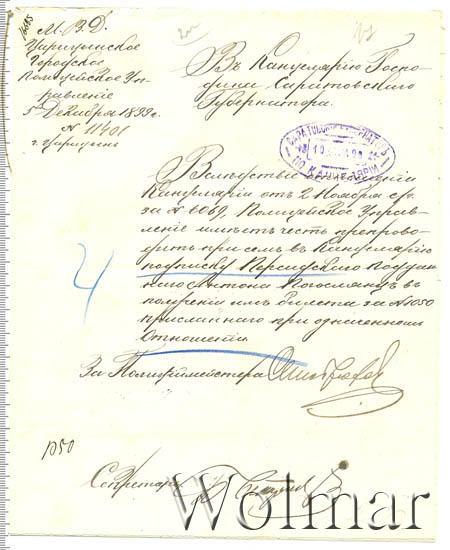 М. В. Д.
Царицынское
Городское
Полицейское Уп-
равление
5 Декабря 1899 г.
№ 11401
г. Царицын
Въ Канцелярію Госпо-
дина Саратовскаго
Губернатора.
ПО КАНЦЕЛЯРІИ
Вследствіе
Канцеляріи отъ 2 Ноября с/г.
за № 6069, Полицейское Управ-
леніе имѣетъ честь препрово-
дить при семъ въ Канцелярію
подписку Персидскаго Поддан-
наго въ
полученіи имъ билета за № 1050
присланнаго при означенномъ
отношеніи.
За Полицiймейстера
1050
Секретарь
Wolmar